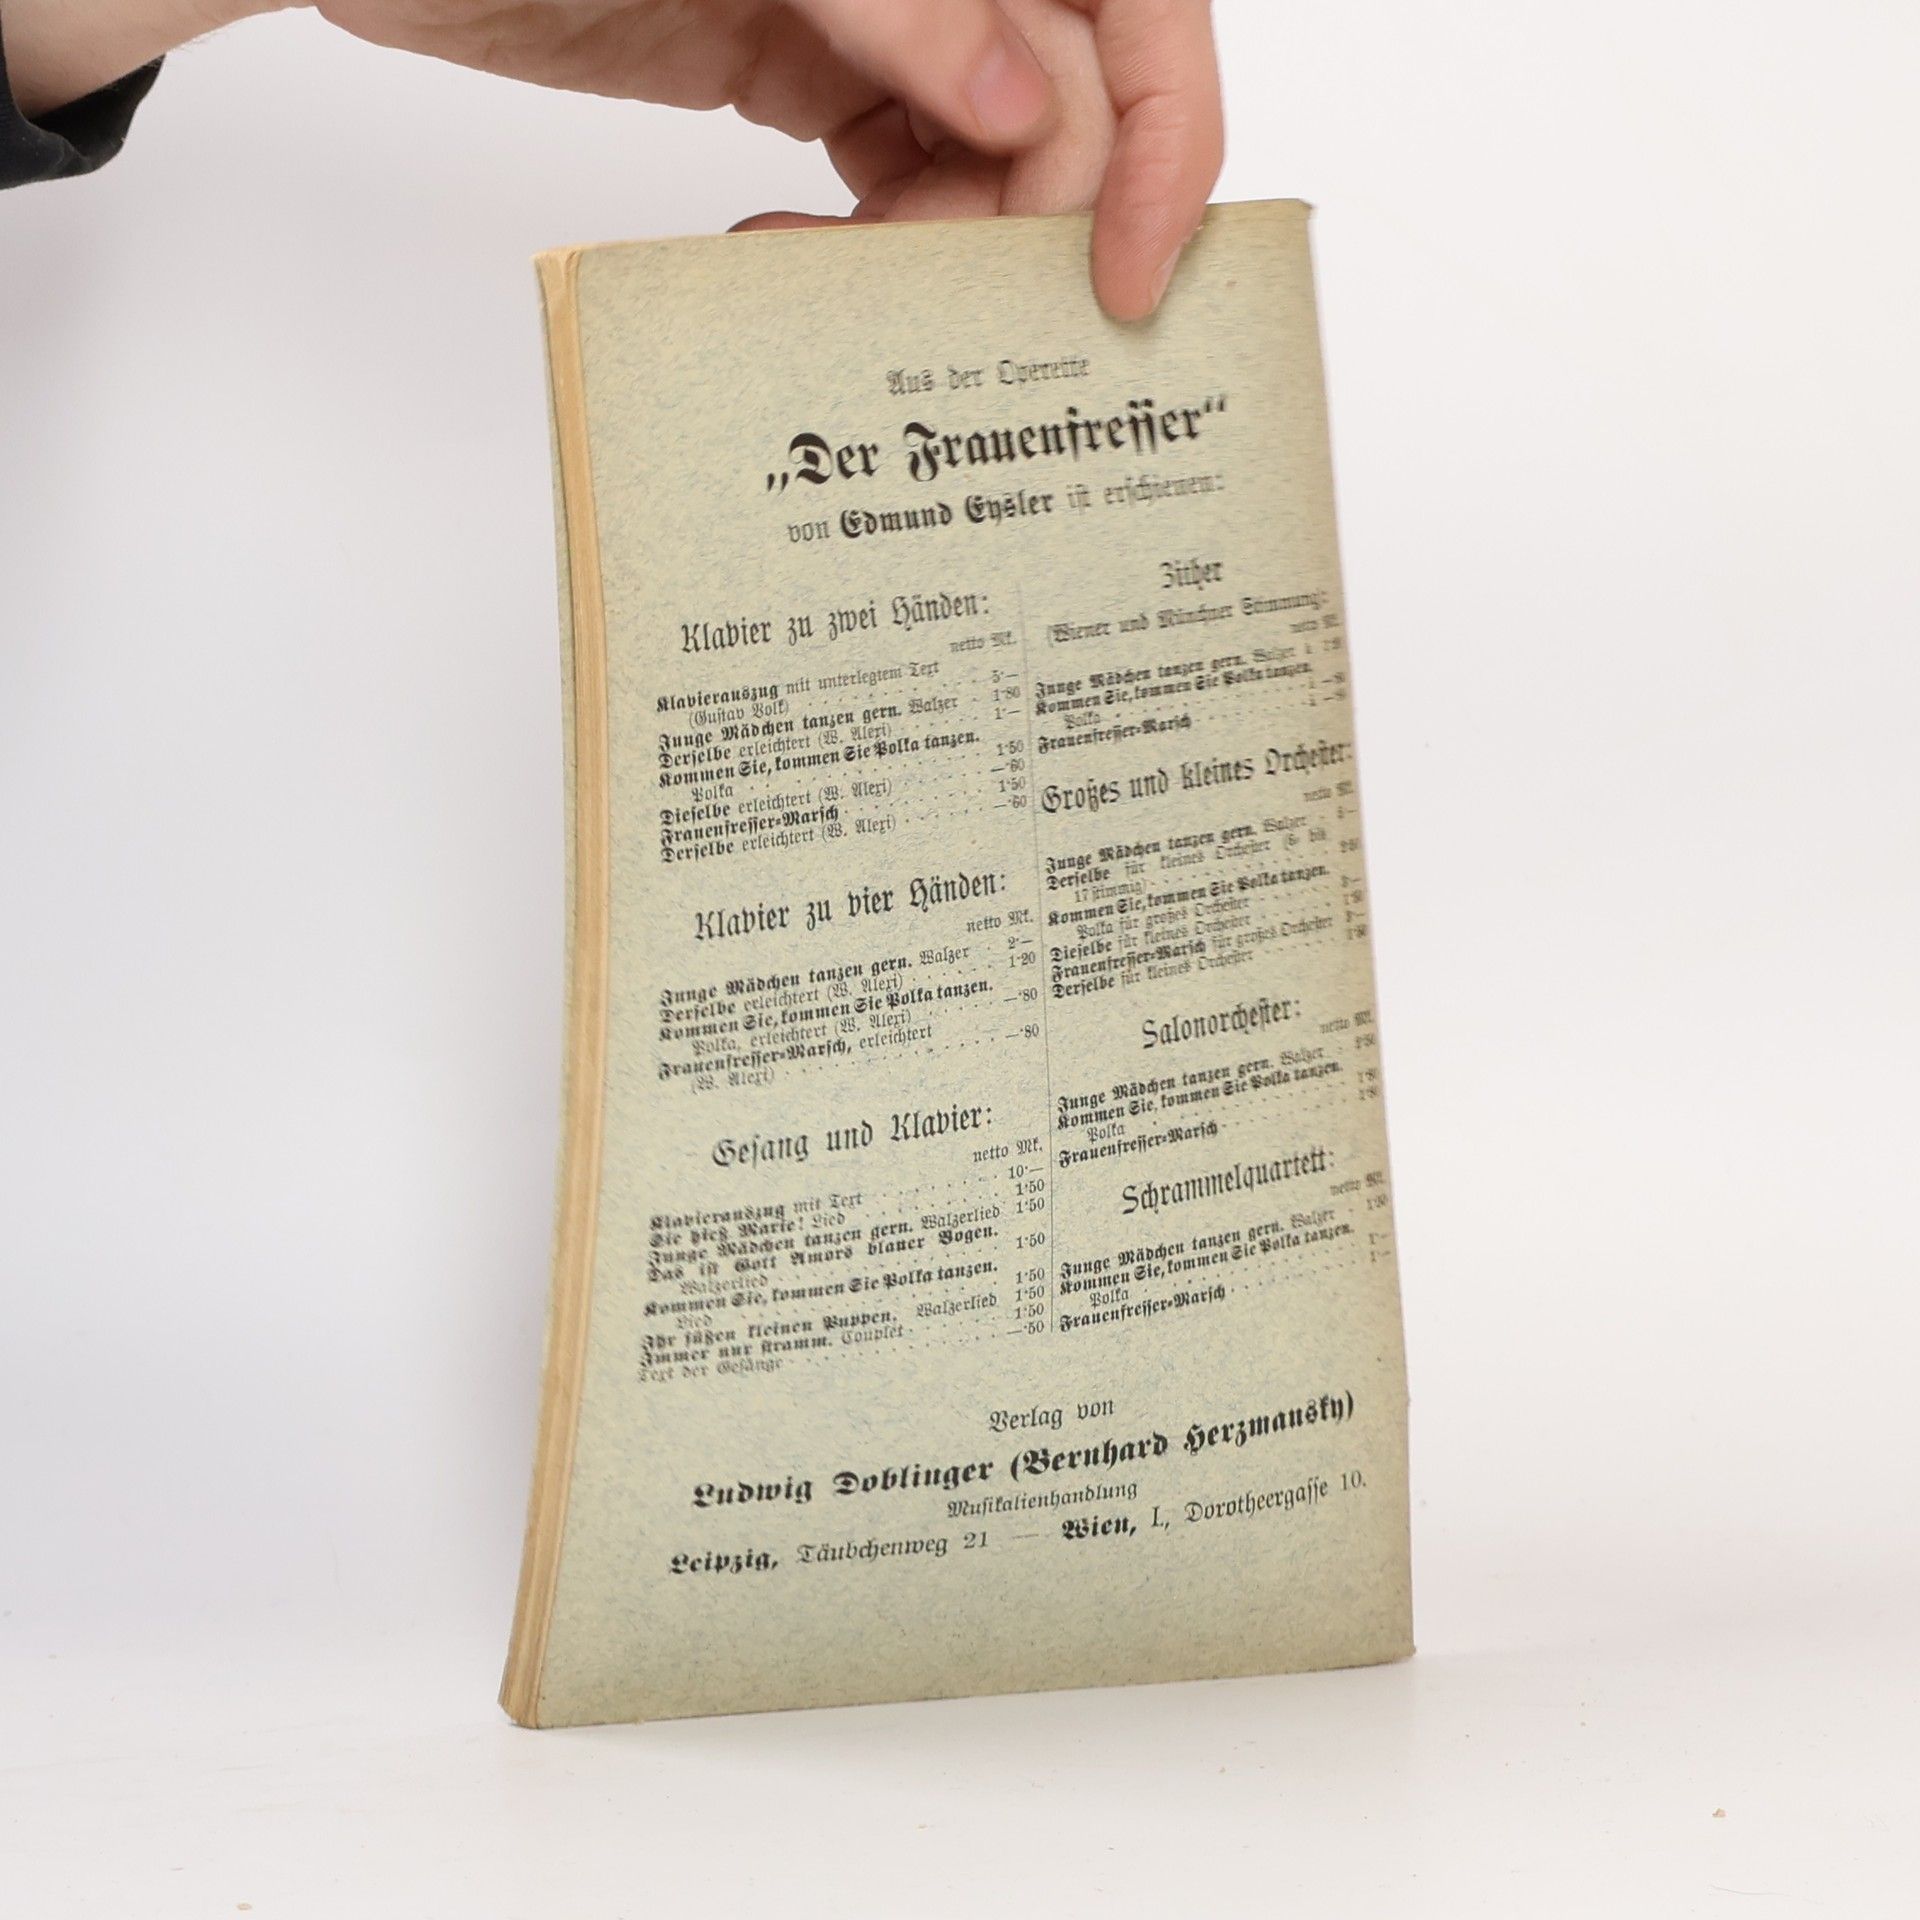 Aus der Operette
„Der Frauenfresser“
von Edmund Eysler ist erschienen:
Klavier zu zwei Händen:
netto Mk.
Klavierauszug mit unterlegtem Text
(Gustav Volk) . . . . . . . . . . 5·—
Junge Mädchen tanzen gern. Walzer . 1·80
Derselbe erleichtert (W. Alexi) . . . . 1·—
Kommen Sie, kommen Sie Polka tanzen.
Polka . . . . . . . . . . 1·50
Dieselbe erleichtert (W. Alexi) . . . . —·60
Frauenfresser-Marsch . . . . . . . 1·50
Derselbe erleichtert (W. Alexi) . . . . —·60
Klavier zu vier Händen:
netto Mk.
Junge Mädchen tanzen gern. Walzer . 2·—
Derselbe erleichtert (W. Alexi) . . . . 1·20
Kommen Sie, kommen Sie Polka tanzen.
Polka, erleichtert (W. Alexi) . . . . —·80
Frauenfresser-Marsch, erleichtert
(W. Alexi) . . . . . . . . . . —·80
Gesang und Klavier:
netto Mk.
Klavierauszug mit Text . . . . . . 10·—
Sie hieß Marie! Lied . . . . . . . 1·50
Junge Mädchen tanzen gern. Walzerlied 1·50
Das ist Gott Amors blauer Bogen.
Walzerlied . . . . . . . . . . 1·50
Kommen Sie, kommen Sie Polka tanzen.
Lied . . . . . . . . . . 1·50
Ihr süßen kleinen Puppen. Walzerlied 1·50
Immer nur stramm. Couplet . . . . 1·50
Text der Gesänge . . . . . . . . —·50
Zither
(Wiener und Münchner Stimmung):
netto Mk.
Junge Mädchen tanzen gern. Walzer à
Kommen Sie, kommen Sie Polka tanzen.
Polka . . . . . . . . . . à —·80
Frauenfresser-Marsch . . . . . . à —·80
Großes und kleines Orchester:
netto Mk.
Junge Mädchen tanzen gern. Walzer .
Derselbe für kleines Orchester (6 bis
17 stimmig) . . . . . . . . . .
Kommen Sie, kommen Sie Polka tanzen.
Polka für großes Orchester . . . . .
Dieselbe für kleines Orchester . . . .
Frauenfresser-Marsch für großes Orchester
Derselbe für kleines Orchester . . . .
Salonorchester:
netto Mk.
Junge Mädchen tanzen gern. Walzer .
Kommen Sie, kommen Sie Polka tanzen.
Polka . . . . . . . . . .
Frauenfresser-Marsch . . . . . . .
Schrammelquartett:
netto Mk.
Junge Mädchen tanzen gern. Walzer .
Kommen Sie, kommen Sie Polka tanzen.
Polka . . . . . . . . . . 1·—
Frauenfresser-Marsch . . . . . . . 1·—
Verlag von
Ludwig Doblinger (Bernhard Herzmansky)
Musikalienhandlung
Leipzig, Täubchenweg 21 — Wien, I., Dorotheergasse 10.